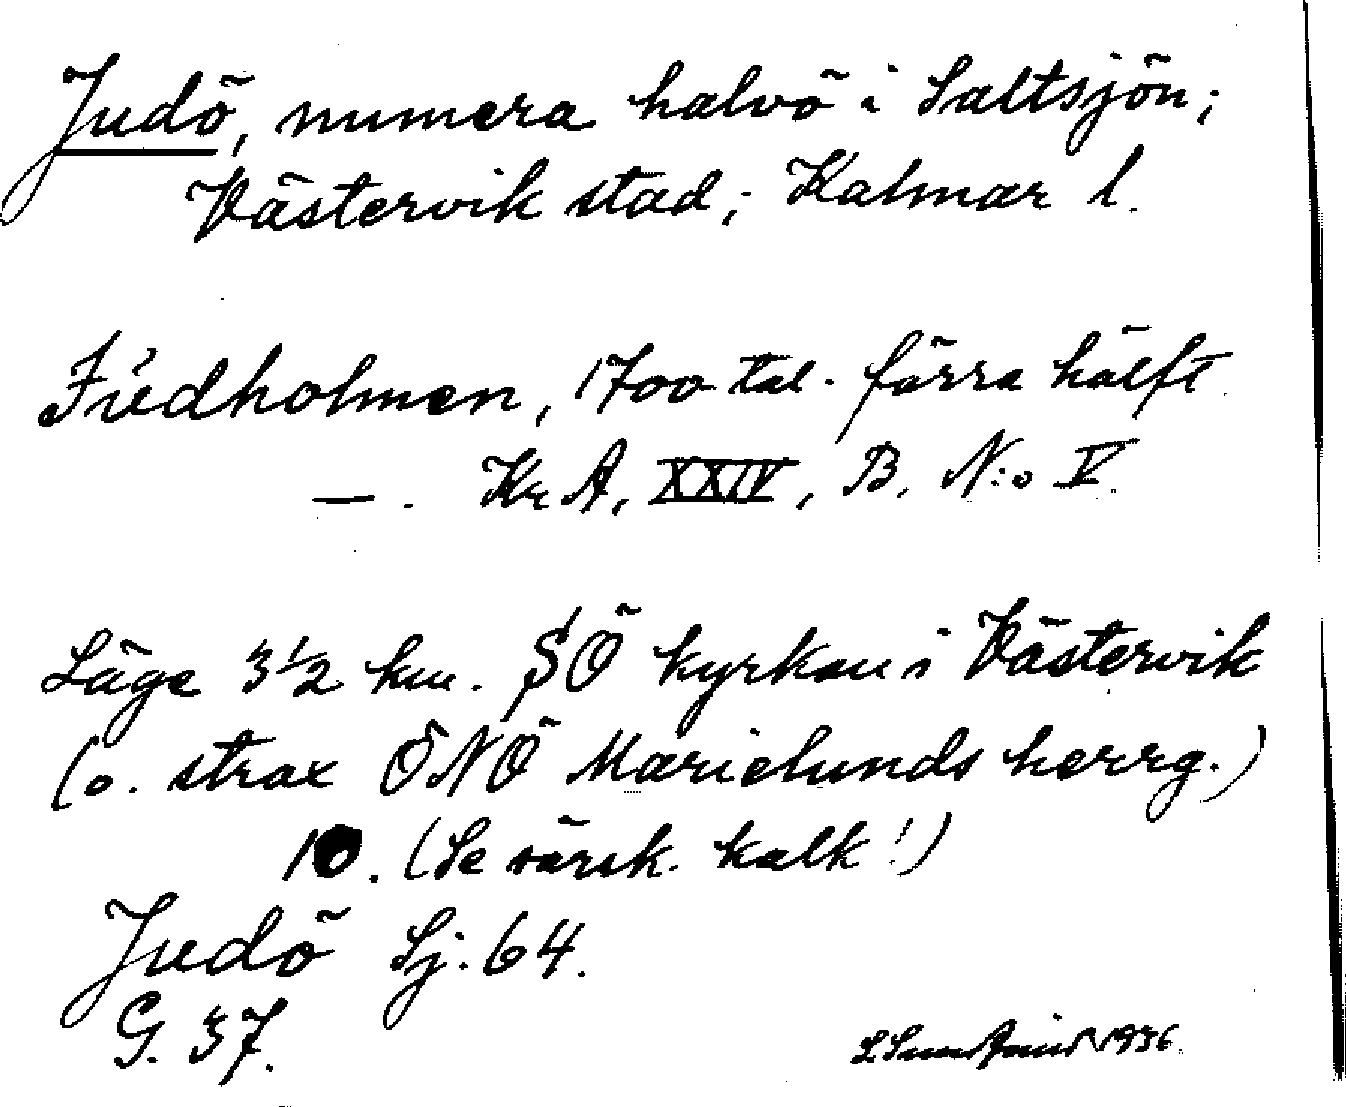 Judö, numera halvö i Saltsjön;
Västervik stad; Kalmar l.
Fiedholmen, 1700-tal. förra hälft
—. Kr A, XXIV, B. N:o V.
Läge 3 1/2 km. SÖ kyrkan i Västervik
(o. strax ÖNÖ Marielunds herrg.)
10. (Se särsk. kalk!)
Judö Sj. 64.
G. 37.
1936.